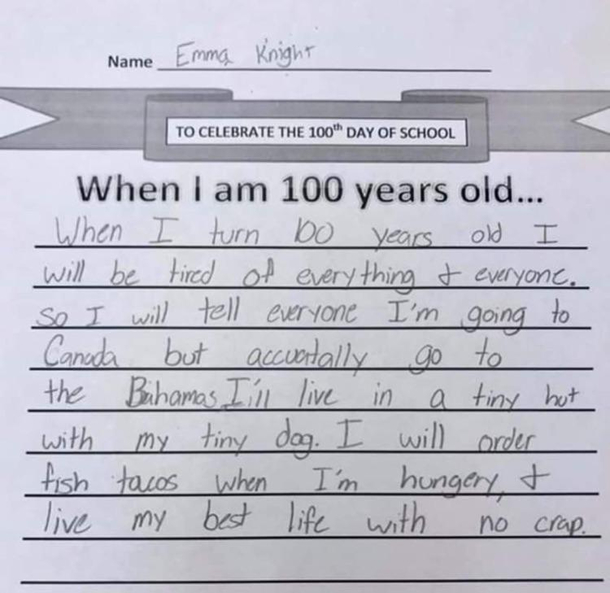 Name Emma Knight
TO CELEBRATE THE 100th DAY OF SCHOOL
When I am 100 years old...
When I turn 100 years old I
will be tired of everything & everyone.
so I will tell everyone I'm going to
Canada but accuatally go to
the Bahamas I'll live in a tiny hut
with my tiny dog. I will order
fish tacos when I'm hungery, &
live my best life with no crap.